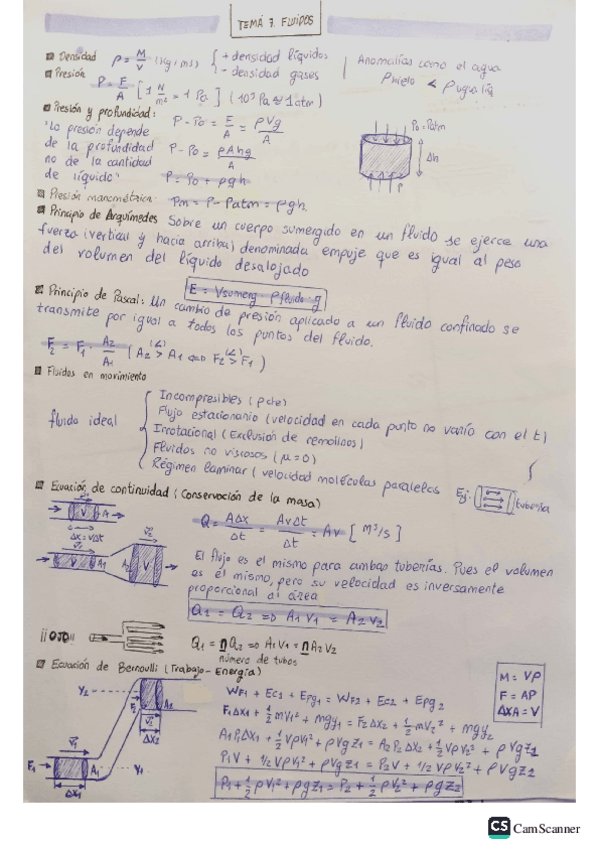 TEMA 7. FLUIDOS
Densidad ρ = M/V (kg/m3) { + densidad líquidos - densidad gases | Anomalías como el agua ρhielo < ρagua líq
Presión P = F/A [1 N/m² = 1 Pa] (10⁵ Pa ≈ 1 atm)
Presión y profundidad:
"La presión depende de la profundidad no de la cantidad de líquido"
P - Po = F/A = ρVg/A
P - Po = ρAhg/A
P = Po + ρgh
Po = Patm
Δh
P
Presión manométrica: Pm = P - Patm = ρgh
Principio de Arquímedes Sobre un cuerpo sumergido en un fluido se ejerce una
fuerza (vertical y hacia arriba) denominada empuje que es igual al peso
del volumen del líquido desalojado
E = Vsumerg · ρfluido · g
Principio de Pascal: Un cambio de presión aplicado a un fluido confinado se
transmite por igual a todos los puntos del fluido.
F2 = F1 · A2/A1 (A2 > (<) A1 ⇔ F2 > (<) F1)
Fluidos en movimiento
fluido ideal
Incompresibles (ρ cte)
Flujo estacionario (velocidad en cada punto no varía con el t)
Irrotacional (Exclusión de remolinos)
Fluidos no viscosos (μ=0)
Régimen laminar (velocidad moléculas paralelas Ej: tubería
Ecuación de continuidad (Conservación de la masa)
V A
Δx = vΔt
Q = AΔx/Δt = AvΔt/Δt = Av [m³/s]
A1 A2 V
El flujo es el mismo para ambas tuberías. Pues el volumen
es el mismo, pero su velocidad es inversamente
proporcional al área
Q1 = Q2 => A1V1 = A2V2
¡¡OJO!!
Q1 = nQ2 => A1V1 = nA2V2
número de tubos
Ecuación de Bernoulli (Trabajo-Energía)
M = Vρ
F = AP
ΔXA = V
Y2
F2
A1
V2
ΔX2
V1
F1
A1
Y1
ΔX1
WF1 + Ec1 + Epg1 = WF2 + Ec2 + Epg2
F1ΔX1 + 1/2 mV1² + mgy1 = F2ΔX2 + 1/2 mV2² + mgy2
A1P1ΔX1 + 1/2 VρV1² + ρVgz1 = A2P2ΔX2 + 1/2 VρV2² + ρVgz2
P1V + 1/2 VρV1² + ρVgz1 = P2V + 1/2 VρV2² + ρVgz2
P1 + 1/2 ρV1² + ρgz1 = P2 + 1/2 ρV2² + ρgz2
CS CamScanner